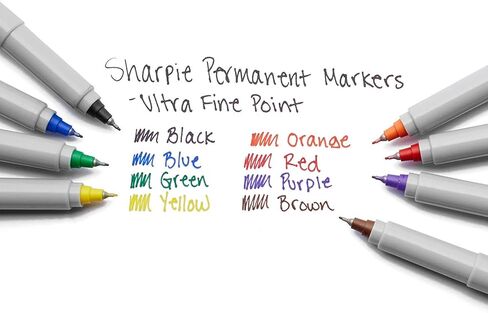 Sharpie Permanent Markers
-Ultra Fine Point
Black
Blue
Green
Yellow
Orange
Red
Purple
Brown